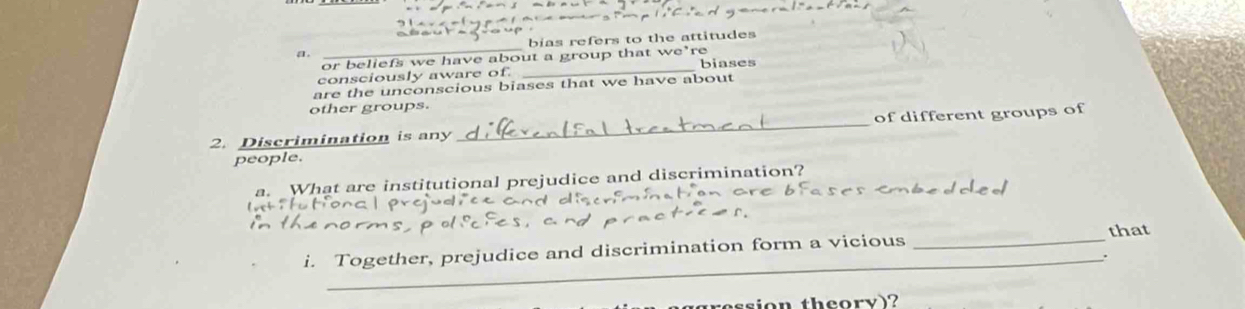 stereotypes are oversimplified generalizations
about a group.
a. bias refers to the attitudes
or beliefs we have about a group that we're
consciously aware of. biases
are the unconscious biases that we have about
other groups.
2. Discrimination is any differential treatment of different groups of
people.
a. What are institutional prejudice and discrimination?
Institutional prejudice and discrimination are biases embedded
in the norms, policies, and practices.
i. Together, prejudice and discrimination form a vicious that
.
theory)?